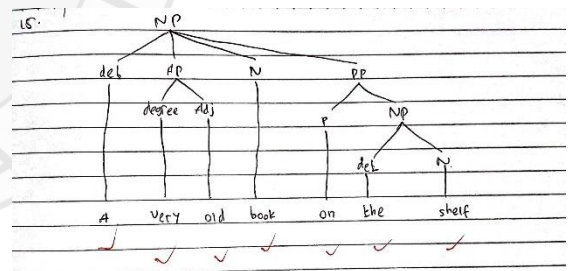 15.
NP
det AP N PP
degree Adj P NP
det N
A very old book on the shelf